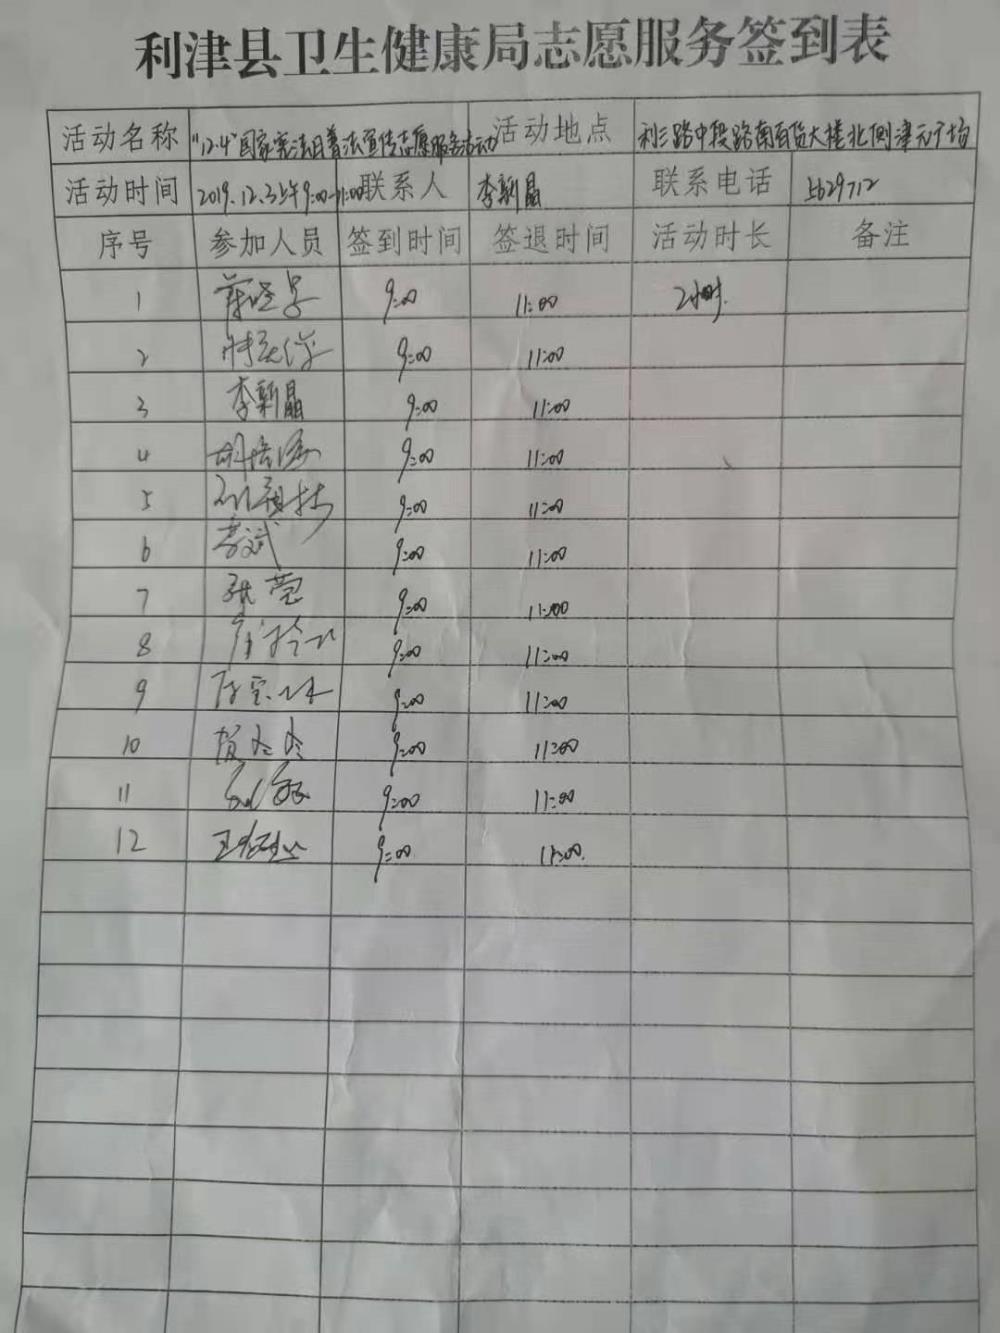 利津县卫生健康局志愿服务签到表
活动名称 "12.4"国家宪法日普法宣传志愿服务活动 活动地点 利三路中段路南百货大楼北侧津元广场
活动时间 2019.12.3上午9:00-11:00 联系人 李新晶 联系电话 5629712
序号 参加人员 签到时间 签退时间 活动时长 备注
1 9:00 11:00 2小时.
2 9:00 11:00
3 李新晶 9:00 11:00
4 9:00 11:00
5 9:00 11:00
6 9:00 11:00
7 张莹 9:00 11:00
8 9:00 11:00
9 9:00 11:00
10 9:00 11:00
11 9:00 11:00
12 9:00 11:00.